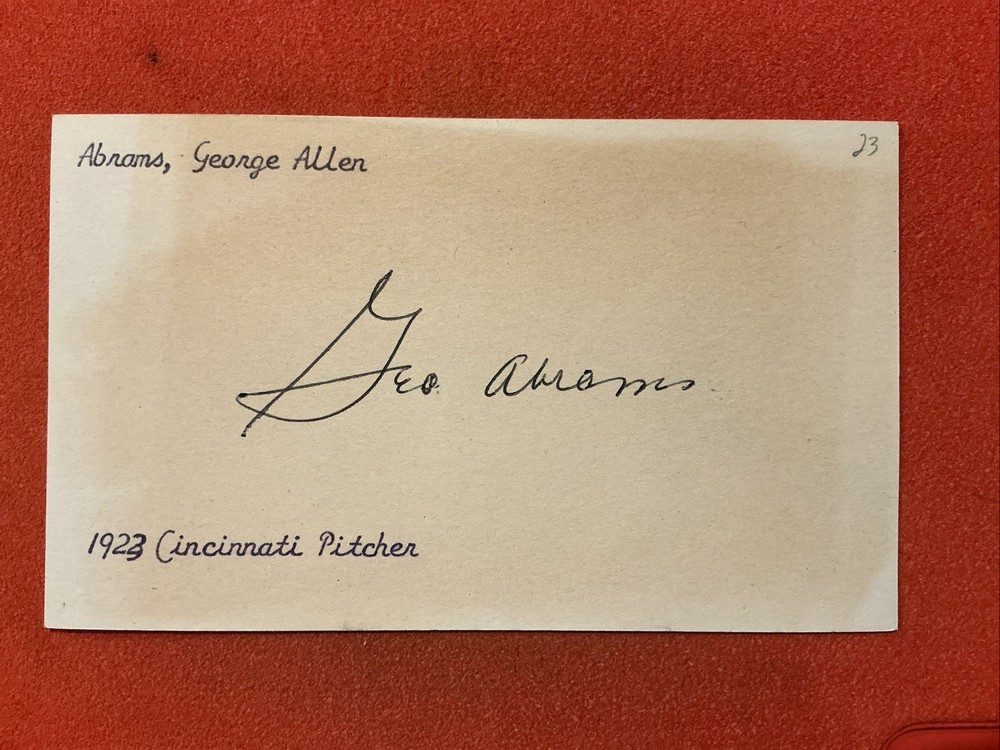 Abrams, George Allen
23
Geo Abrams
1923 Cincinnati Pitcher